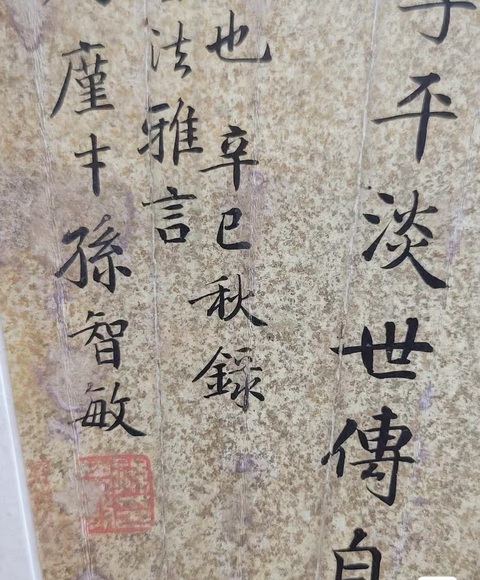 平淡世傳自
也 辛巳秋錄
法雅言
廑才孫智敏